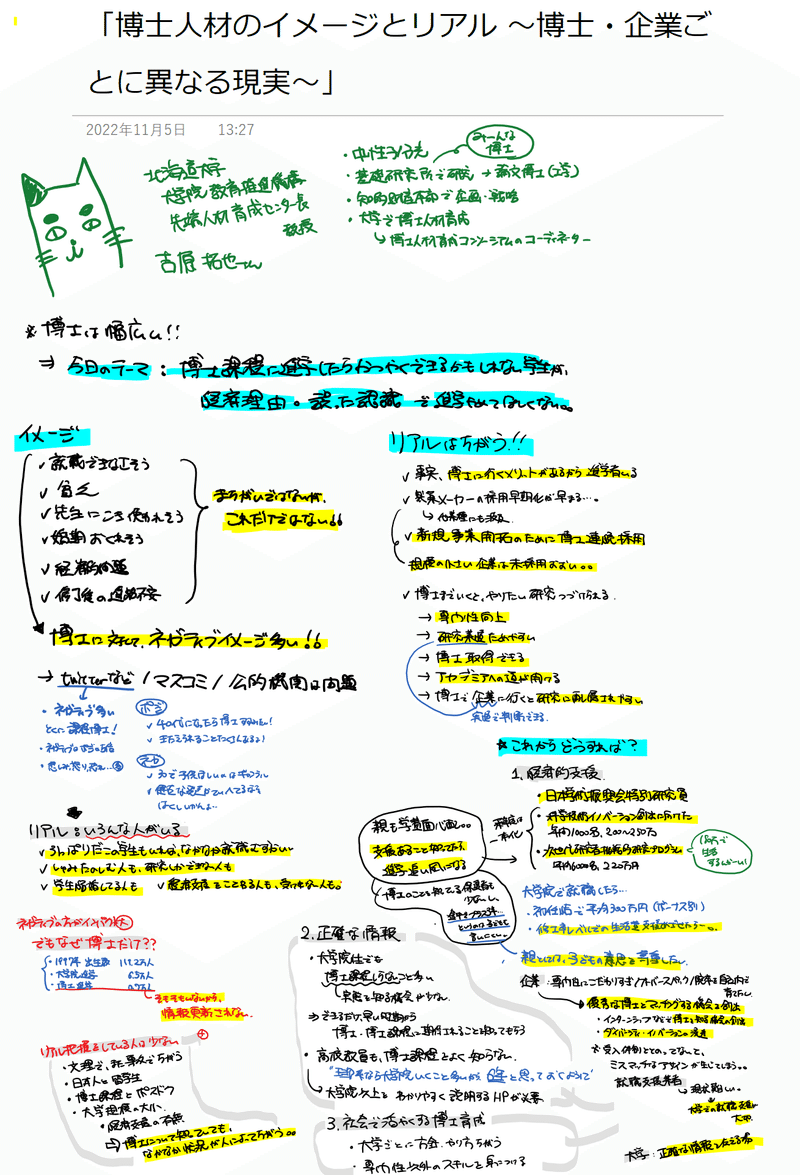 「博士人材のイメージとリアル ～博士・企業ご
とに異なる現実～」
2022年11月5日 13:27
北海道大学
大学院教育推進機構
先端人材育成センター長
教授
吉原 拓也さん
みーんな
博士
・中性子分光
・基礎研究所で研究 → 論文博士(工学)
・知的財産本部で企画・戦略
・大学で博士人材育成
↳ 博士人材育成コンソーシアムのコーディネーター
※博士は幅広い!!
⇒ 今日のテーマ：博士課程に進学したらかつやくできるかもしれない学生が、
経済理由・誤った認識 で進学やめてほしくない。
イメージ
✓ 就職できなそう
✓ 貧乏
✓ 先生にこき使われそう
✓ 婚期おくれそう
✓ 経済的問題
✓ 修了後の進路不安
まちがいではないが、
これだけではない!!
博士に対して、ネガティブイメージ多い!!
→ twitterなど / マスコミ / 公的機関は問題
・ネガティブ多い
とくに課程博士!
ポジ
✓ 40代になったら博士すすめたい!
ネガ
リアル：いろんな人がいる
✓ ひっぱりだこの学生もいれば、なかなか就職むずかしい
✓ しゃみたのしむ人も、研究しかできない人も
✓ 学生結婚してる人も ✓ 経済支援をことわる人も、受けれない人も。
ネガティブの方がインパクト大
でもなぜ博士だけ??
・1997年 出生数 119.2万人
・大学院進学
・博士進学
そもそもいないから、
情報更新されない。
リアル把握をしている人は少ない
・文理で、また専攻でちがう
・日本人と留学生
・博士課程とポスドク
・大学規模の大小
・経済支援の有無
⇒ 博士について知っていても、
なかなか状況が人によってちがう。
リアルはちがう!!
✓ 事実、博士に行くメリットがあるから進学者いる
✓ 製薬メーカーの採用早期化が早まる…。
↳ 他業種にも波及
✓ 新規事業開拓のために博士達を採用
規模の小さい企業は未採用おおい。
✓ 博士までいくと、やりたい研究つづけられる
→ 専門性向上
→ 研究業績ためやすい
→ 博士取得できる
→ アカデミアへの道が開ける
→ 博士で企業に行くと研究に配属されやすい
実績で判断できる
★これからどうすれば?
1. 経済的支援
・日本学術振興会特別研究員
・科学技術イノベーション創出に向けた
年間1000名、200～250万
・次世代研究者挑戦的研究プログラム
年間6000名、220万円
親も学費面心配。
支援あること知ってれば、
進学追い風になる
博士のことを知ってる保護者も
少ない。
大学院で就職したら…
・初任給で平均300万円(ボーナス別)
親としては、子どもの意思を尊重したい。
2. 正確な情報
・大学院生でも
博士課程しらないこと多い
実態を知る機会が少ない
⇒ できるだけ早い時期から
博士・博士課程に期待されること知ってもらう
・高校教員も、博士課程をよく知らない。
“理系なら大学院いくこと多いから、6年と思っておくように”
↳ 大学院以上をわかりやすく説明するHPが必要
企業：
→ 優秀な博士とマッチングする機会を創出
・インターンシップなどで博士を知る機会の創出
・ダイバーシティ・イノベーションの浸透
※受入体制ととのってなくて、
ミスマッチなデザインが生じてしまう。
就職支援業者
→ 現状難しい。
大学での就職支援が
大切。
大学：正確な情報を伝える
3. 社会で活やくする博士育成
・大学ごとに方針、やり方ちがう
・専門性以外のスキルを身につける